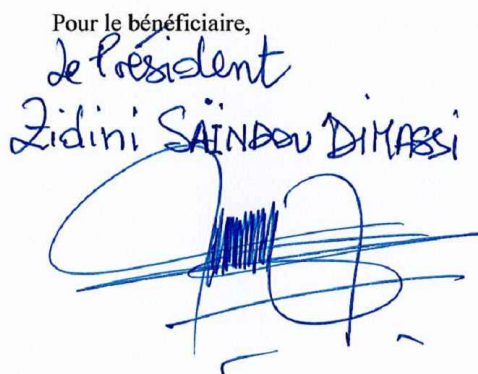 Pour le bénéficiaire,
Le Président
Zidini SAÏNDOU DIMASSI